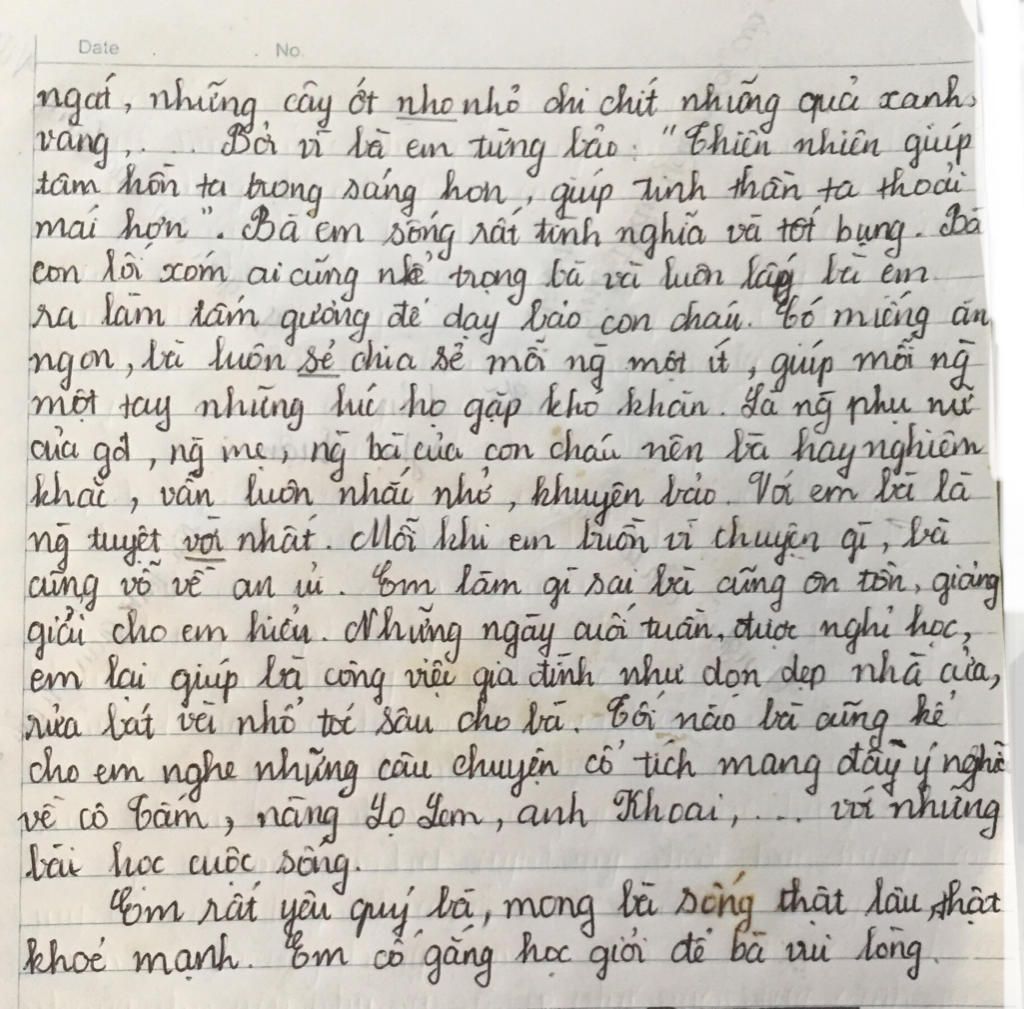 Date . . No.
ngát, những cây ớt nho nhỏ chi chít những quả xanh,
vàng,.... Bởi vì bà em từng bảo: "Thiên nhiên giúp
tâm hồn ta trong sáng hơn, giúp tinh thần ta thoải
mái hơn". Bà em sống rất tình nghĩa và tốt bụng. Bà
con lối xóm ai cũng nể trọng bà và luôn lấy bà em
ra làm tấm gương để dạy bảo con cháu. Có miếng ăn
ngon, bà luôn sẻ chia sẻ mỗi ng̃ một ít, giúp mỗi ng̃
một tay những lúc họ gặp khó khăn. Là ng̃ phụ nữ
của gđ, ng̃ mẹ, ng̃ bà của con cháu nên bà hay nghiêm
khắc, vẫn luôn nhắc nhở, khuyên bảo. Với em bà là
ng̃ tuyệt vời nhất. Mỗi khi em buồn vì chuyện gì, bà
cũng vỗ về an ủi. Em làm gì sai bà cũng ôn tồn, giảng
giải cho em hiểu. Những ngày cuối tuần, được nghỉ học,
em lại giúp bà công việc gia đình như dọn dẹp nhà cửa,
rửa bát và nhổ tóc sâu cho bà. Tối nào bà cũng kể
cho em nghe những câu chuyện cổ tích mang đầy ý nghĩa
về cô Tấm, nàng Lọ Lem, anh Khoai,... với những
bài học cuộc sống.
Em rất yêu quý bà, mong bà sống thật lâu, thật
khoẻ mạnh. Em cố gắng học giỏi để bà vui lòng.